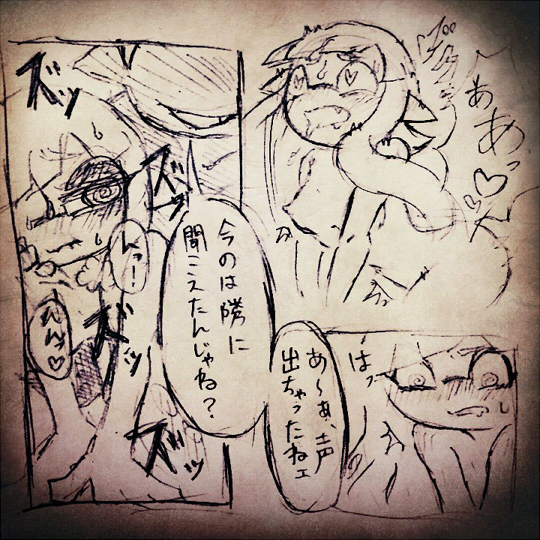 あ
あっ♡♡
ズッ
ズッ
んっ…
んんッ♡
ズッ
ズッ
今のは隣に
聞こえたんじゃね？
はっ
あ～あ、声
出ちゃったねェ